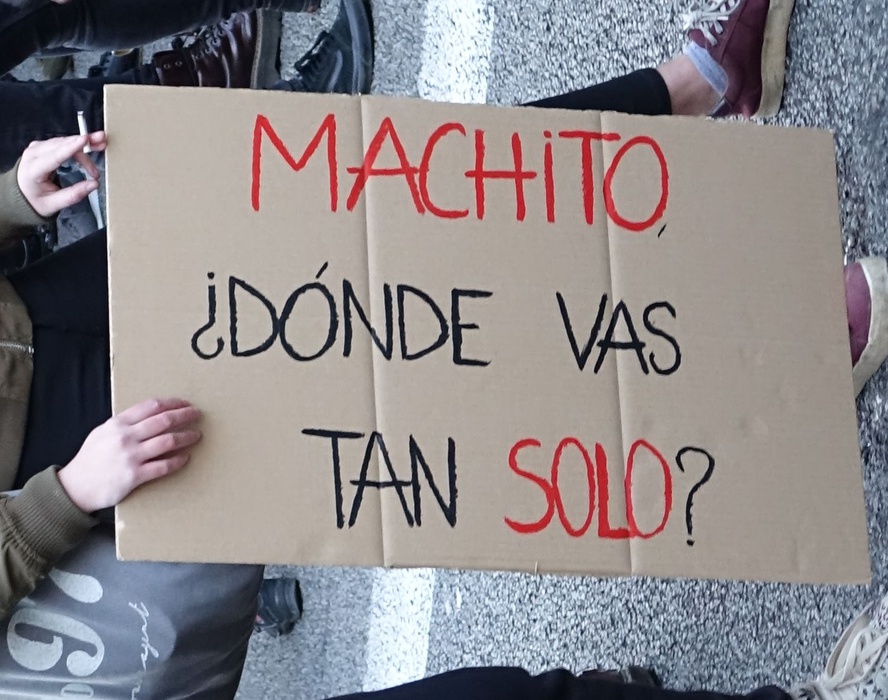 MACHiTO,
¿DÓNDE VAS
TAN SOLO?